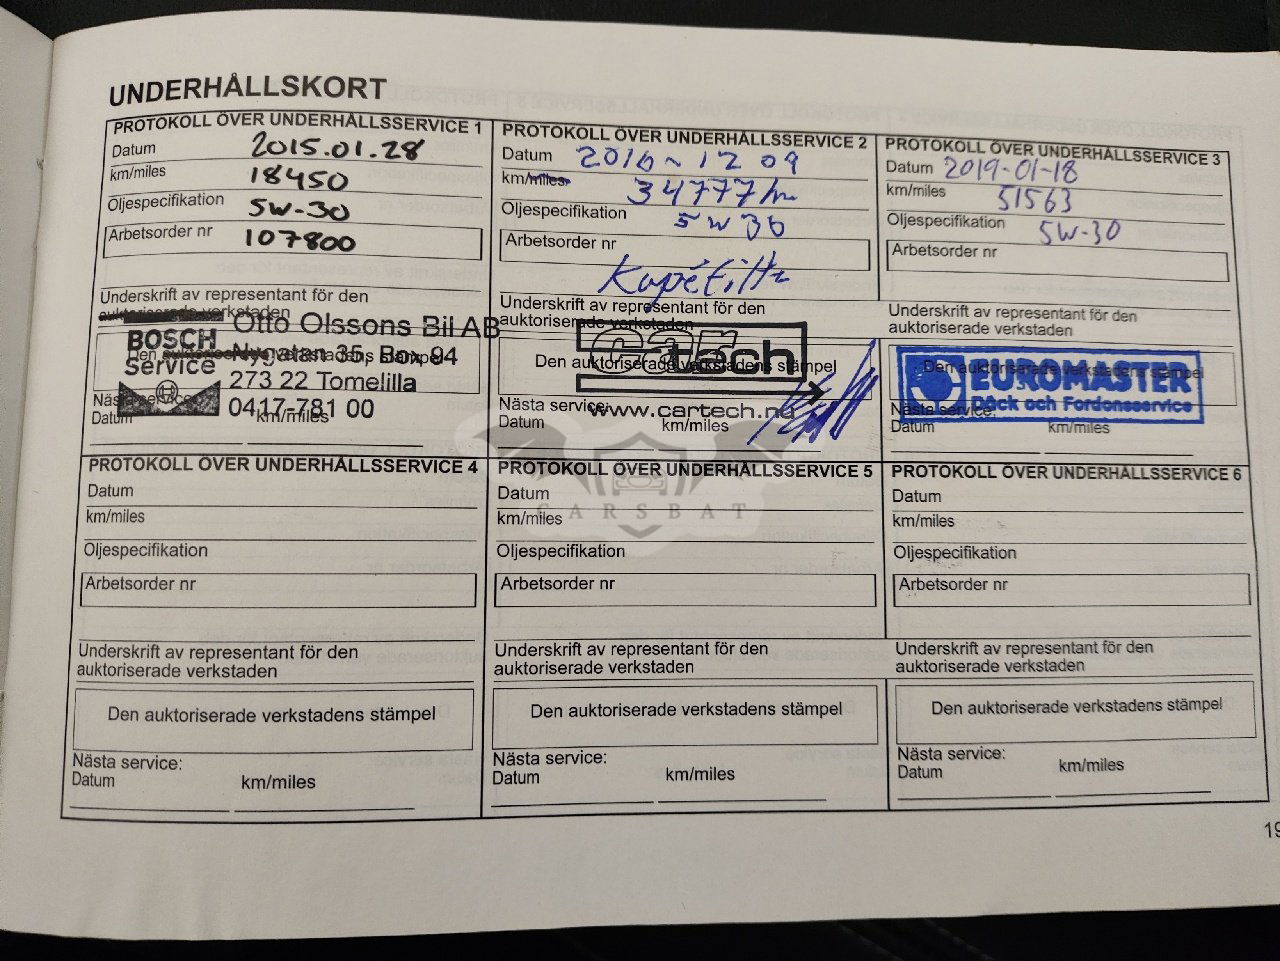 UNDERHÅLLSKORT
PROTOKOLL ÖVER UNDERHÅLLSSERVICE 1
Datum 2015.01.28
km/miles 18450
Oljespecifikation 5W-30
Arbetsorder nr 107800
Underskrift av representant för den
auktoriserade verkstaden
BOSCH
Service
Otto Olssons Bil AB
Nygatan 35, Box 94
273 22 Tomelilla
0417-781 00
Den auktoriserade verkstadens stämpel
Nästa service:
Datum km/miles
PROTOKOLL ÖVER UNDERHÅLLSSERVICE 2
Datum 2016-12 09
km/miles 34777
Oljespecifikation 5W30
Arbetsorder nr
Underskrift av representant för den
auktoriserade verkstaden
Den auktoriserade verkstadens stämpel
cartech
www.cartech.nu
Nästa service:
Datum km/miles
PROTOKOLL ÖVER UNDERHÅLLSSERVICE 3
Datum 2019-01-18
km/miles 51563
Oljespecifikation 5W-30
Arbetsorder nr
Underskrift av representant för den
auktoriserade verkstaden
Den auktoriserade verkstadens stämpel
EUROMASTER
Däck och Fordonsservice
Nästa service:
Datum km/miles
CARSBAT
PROTOKOLL ÖVER UNDERHÅLLSSERVICE 4
Datum
km/miles
Oljespecifikation
Arbetsorder nr
Underskrift av representant för den
auktoriserade verkstaden
Den auktoriserade verkstadens stämpel
Nästa service:
Datum km/miles
PROTOKOLL ÖVER UNDERHÅLLSSERVICE 5
Datum
km/miles
Oljespecifikation
Arbetsorder nr
Underskrift av representant för den
auktoriserade verkstaden
Den auktoriserade verkstadens stämpel
Nästa service:
Datum km/miles
PROTOKOLL ÖVER UNDERHÅLLSSERVICE 6
Datum
km/miles
Oljespecifikation
Arbetsorder nr
Underskrift av representant för den
auktoriserade verkstaden
Den auktoriserade verkstadens stämpel
Nästa service:
Datum km/miles